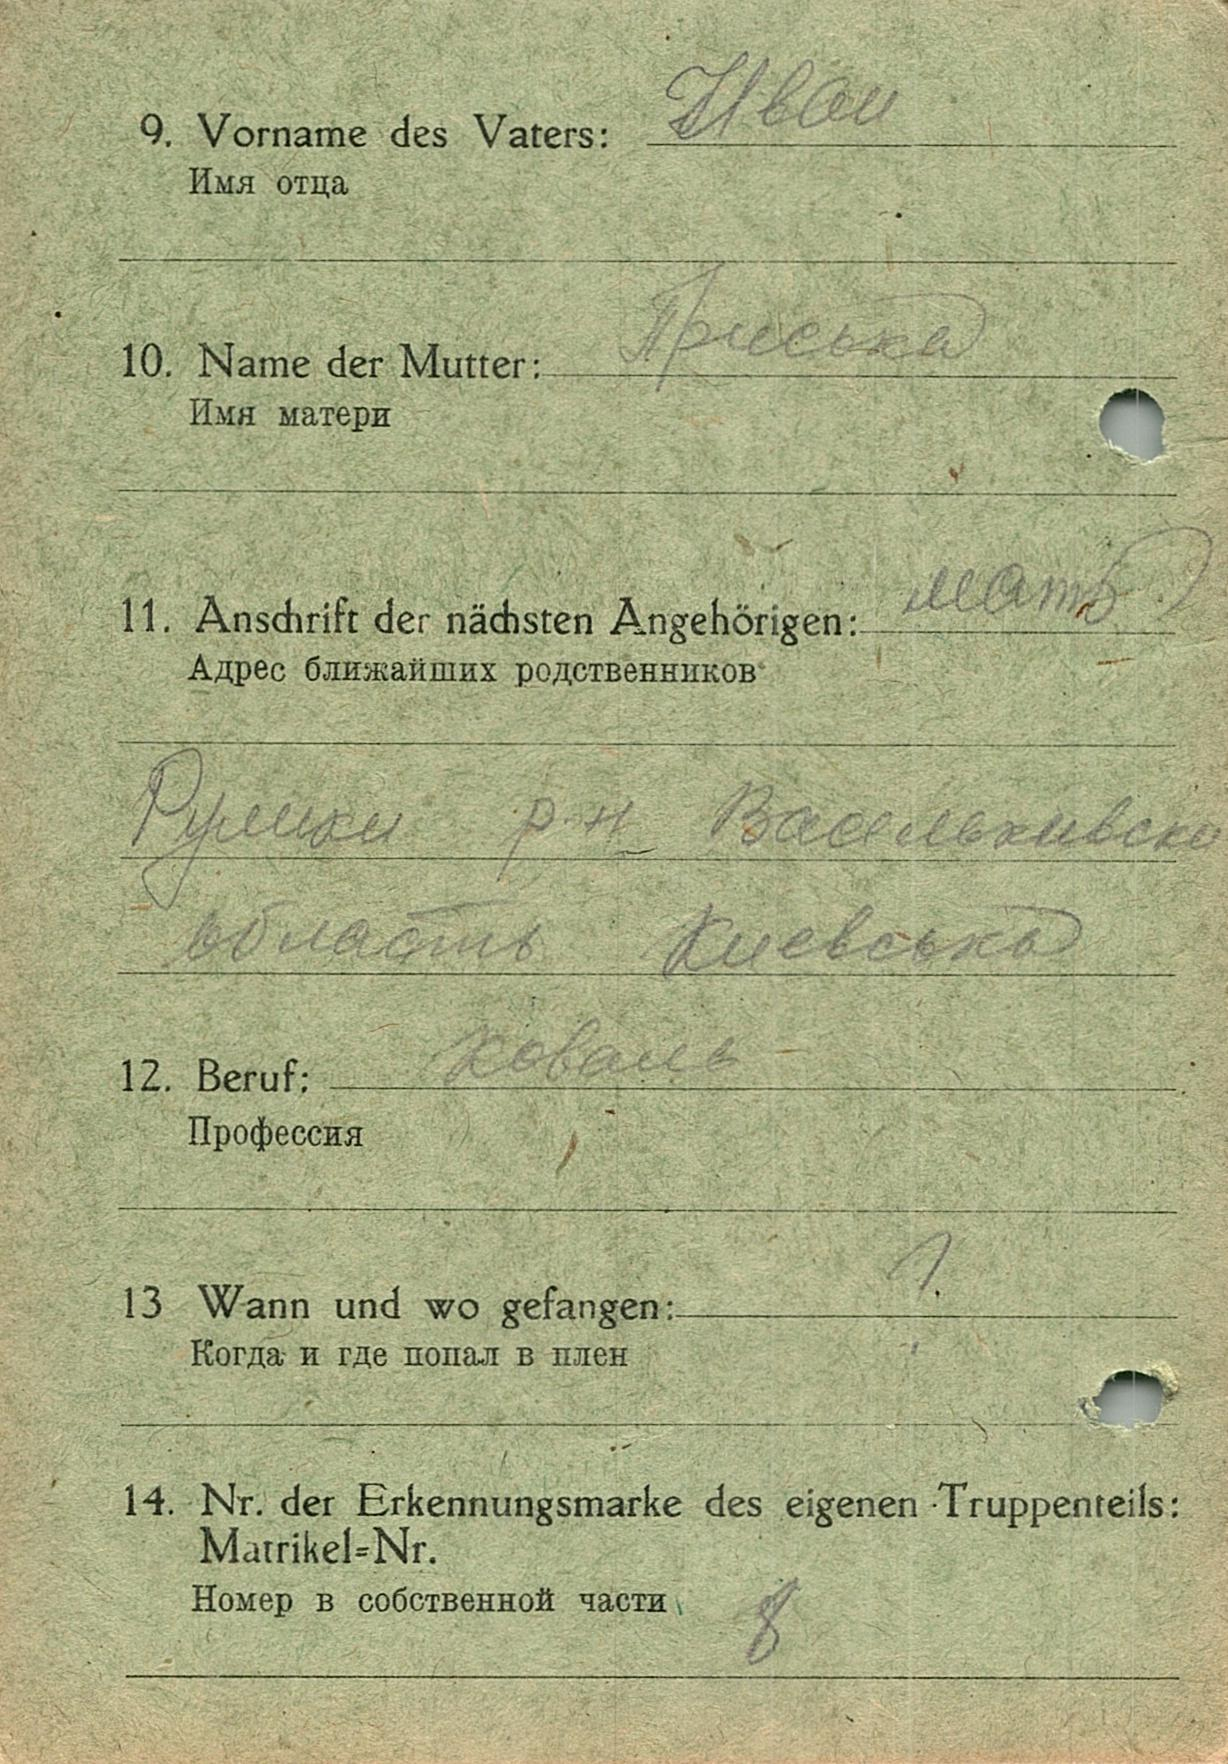 9. Vorname des Vaters: Иван
Имя отца
10. Name der Mutter: Приська
Имя матери
11. Anschrift der nächsten Angehörigen: мать
Адрес ближайших родственников
р-н
область Киевська
12. Beruf: коваль
Профессия
13 Wann und wo gefangen:
Когда и где попал в плен
14. Nr. der Erkennungsmarke des eigenen Truppenteils:
Matrikel=Nr.
Номер в собственной части